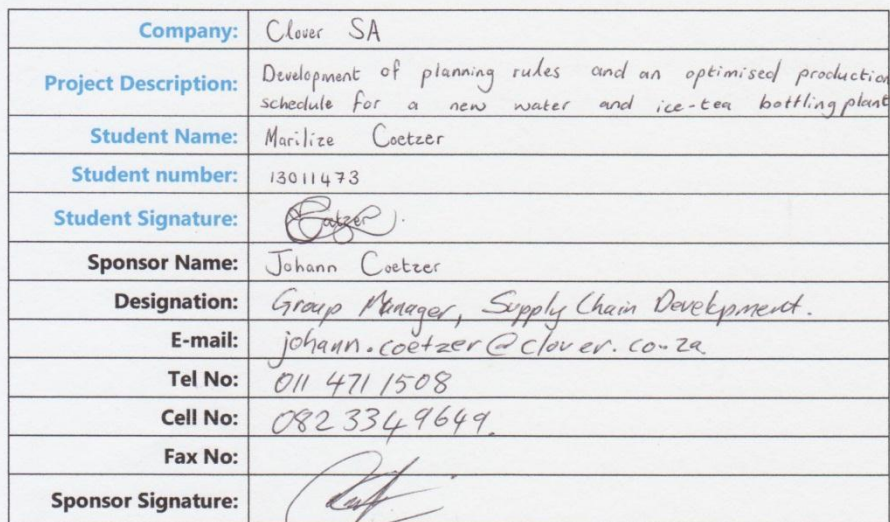 Company: Clover SA
Project Description: Development of planning rules and an optimised production
schedule for a new water and ice-tea bottling plant
Student Name: Marilize Coetzer
Student number: 13011473
Student Signature: Coetzer
Sponsor Name: Johann Coetzer
Designation: Group Manager, Supply Chain Development.
E-mail: johann.coetzer@clover.co.za
Tel No: 011 471 1508
Cell No: 082 334 9649.
Fax No:
Sponsor Signature: